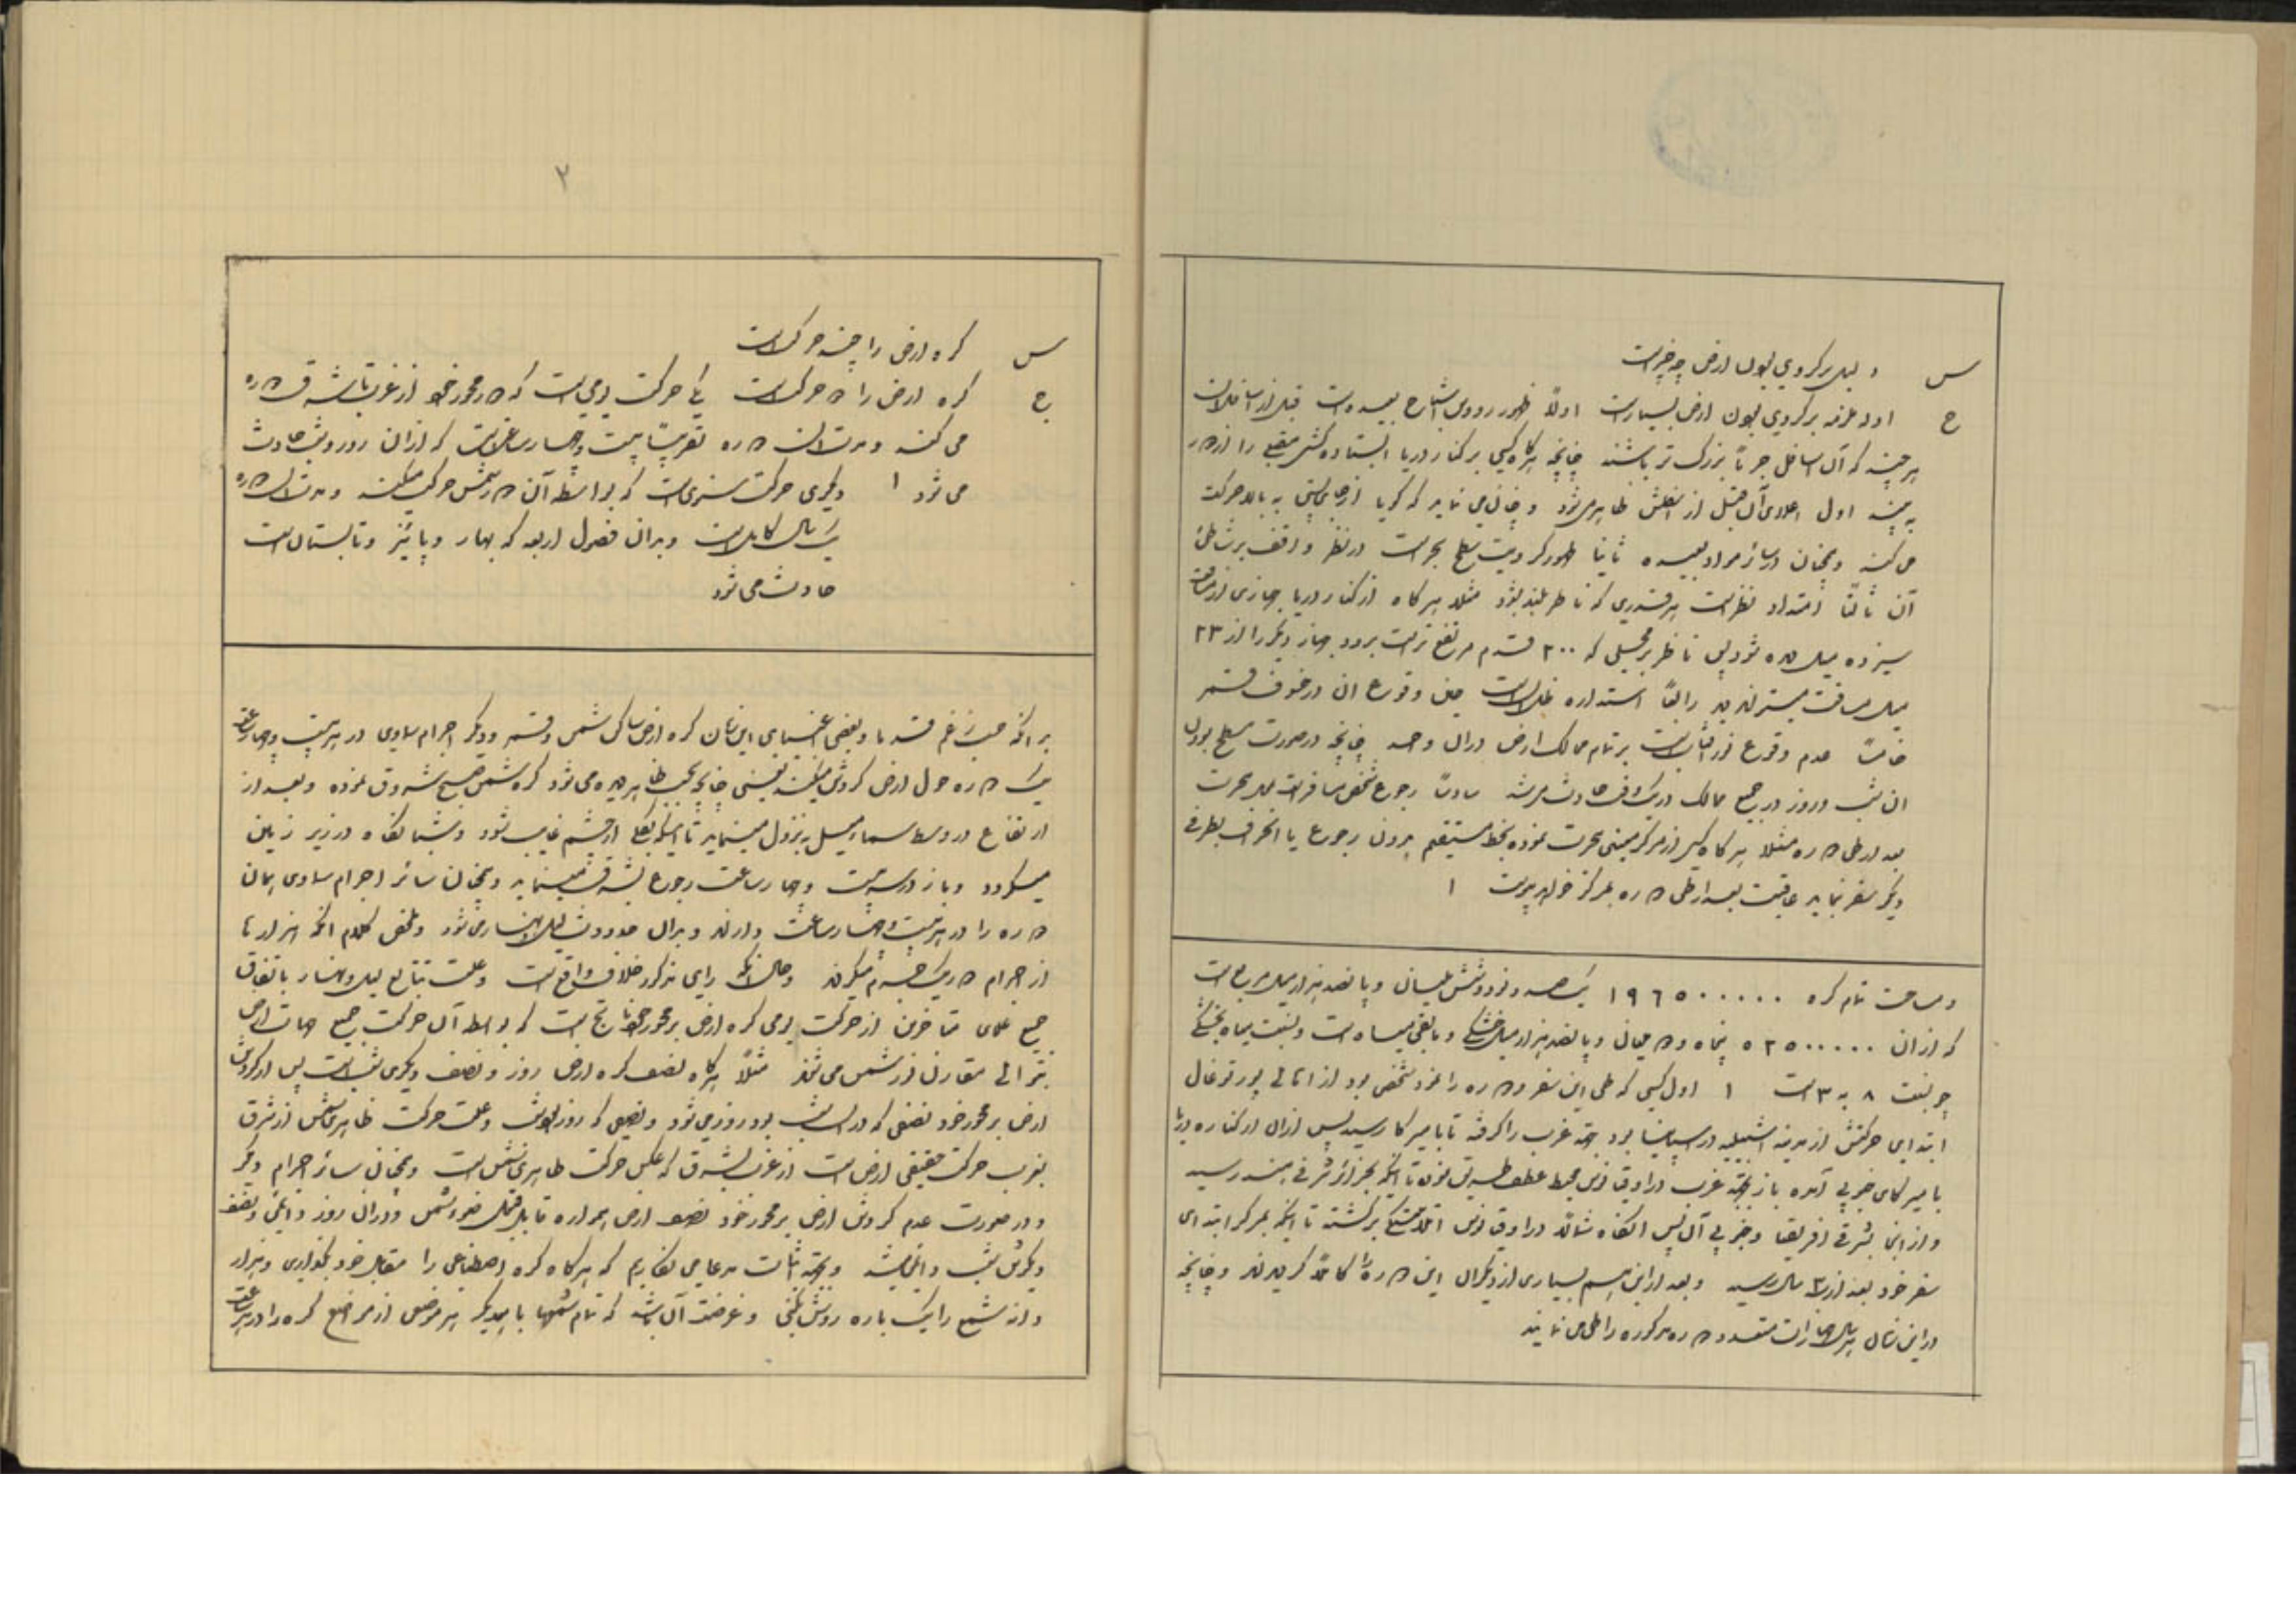 س دلیل بر کروی بودن ارض چه چیز است
ج ادله عرفیه بر کروی بودن ارض بسیار است اولاً ظهور رؤوس اشباح بعیده است قبل از اسافل آن
هر چند که آن اسافل جرماً بزرگ تر باشند چنانچه هرگاه کسی بر کنار دریا ایستاده کشتی مقبلی را از دور
به بیند اول اعلای آن قبل از اسفلش ظاهر می شود و چنان می نماید که گویا از جای پستی به بالا حرکت
می کند و همچنان در سائر مواد بعیده ثانیا ظهور کرویت سطح بحر است در نظر واقف بر شاطئ
آن ثالثاً امتداد نظر است هر قدری که ناظر بلند شود مثلا هر گاه از کنار دریا جهازی از مسافت
سیزده میل دیده شود پس ناظر بر محلی که ۲۰۰ قدم مرتفع تر است برود جهاز دیگر را از ۲۳
میل مسافت میتواند دید رابعاً استداره ظل آن است حین وقوع ان در خسوف قمر
خامساً عدم وقوع نور آفتاب است بر تمام ممالک ارض در آن واحد چنانچه در صورت مسطح بودن
ان شب و روز در جمیع ممالک در یک وقت حادث میشد سادساً رجوع شخص مسافر است بمبدء حرکت
بعد از طی دوره مثلا هر گاه کسی از مرکز معینی حرکت نموده بخط مستقیم بدون رجوع یا انحراف بطرفی
دیگر سفر نماید عاقبت بعد از طی دوره بمرکز خواهد پیوست ۱
و مساحت تمام کره ۱۹٦٥۰۰۰۰۰ یکصد و نود و شش ملیان و پانصد هزار میل مربع است
که از ان ٥۲٥۰۰۰۰۰ پنجاه و دو ملیان و پانصد هزار میل خشکی و باقی میاه است و نسبت میاه بخشکی
چو نسبت ۸ به ۳ است ۱ اول کسی که طی این سفر و دوره را نمود شخصی بود از اهالی پورتوغال
ابتدای حرکتش از مدینه اشبیلیه در سپانیا بود جهة غرب را گرفته تا بامیرکا رسید پس از ان از کناره دریا
بامیرکای جنوبی آمده باز بجهة غرب در اوقیانوس محیط عطف طریق نموده تا اینکه بجزائر شرقی هند رسید
و از انجا بشرقی افریقا و جنوبی آن پس آنگاه شمالاً در اوقیانوس اتلانتیکی برگشته تا اینکه بمرکز ابتدای
سفر خود بعد از ۳ سال رسید و بعد از این اسم بسیاری از دیگران این دوره را کاملاً گردیدند و چنانچه
در این زمان هر سال جهازات متعدد دوره مذکوره را طی می نمایند
۲
س کره ارض را چند حرکت است
ج کره ارض را دو حرکت است یکی حرکت یومی است که در محور خود از غرب تا بشرق دوره
می کند و مدت ان دوره تقریباً بیست و چهار ساعت است که از ان روز و شب حادث
می شود ۱ دیگری حرکت سنوی است که بواسطه آن در دور شمس حرکت میکند و مدت ان دوره
یک سال کامل است و بدان فصول اربعه که بهار و پائیز و تابستان است
حادث می شود
بدانکه حسب زعم قدما و بعضی اغبیای این زمان کره ارض ساکن شمس و قمر و دیگر اجرام سماوی در هر بیست و چهار ساعت
یک دوره حول ارض گردش میکنند یعنی چنانچه بحسب ظاهر دیده می شود که شمس صبح شروق نموده و بعد از
ارتفاع در وسط سماء میل به نزول مینماید تا اینکه بکلی از چشم غایب شود و شبا نگاه در زیر زمین
میگردد و باز در سر بیست و چهار ساعت رجوع بشرق مینماید و همچنان سائر اجرام سماوی همان
دوره را در هر بیست و چهار ساعت دارند و بدان حدوث لیل و نهار می شود و ملخص کلام انکه هزارها
از اجرام دور یک جسم میگردند و حال آنکه رای مذکور خلاف واقع است و علت تتابع لیل و نهار باتفاق
جمیع علمای متاخرین از حرکت یومی کره ارض بر محور خود ناتج است که بواسطه آن حرکت جمیع جهات ارض
بتوالی مقارن نور شمس می شوند مثلاً هر گاه نصف کره ارض روز و نصف دیگری شب است پس از گردش
ارض بر محور خود نصفی که در ان شب بود روز می شود و نصفی که روز بود شب و علت حرکت ظاهری شمس از شرق
بغرب حرکت حقیقی ارض است از غرب بشرق که عکس حرکت ظاهری شمس است و همچنان سائر اجرام دیگر
و در صورت عدم گردش ارض بر محور خود نصف ارض همواره قابل ضوء شمس و در ان روز دائمی و نصف
دیگرش شب دائمی میشد و بجهة اثبات مدعا می نگاریم که هر گاه کره اصطناعی را مقابل خود بگذاری و هزار
دانه شمع را یک باره روشن کنی و غرضت آن باشد که تمام شمعها با یکدیگر هر موضعی از مواضع کره را در هر ساعت